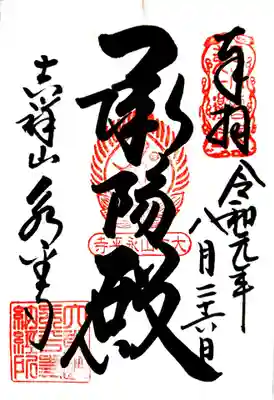 奉拝
令和元年
八月二十六日
承陽殿
大本山永平寺
吉祥山永平寺